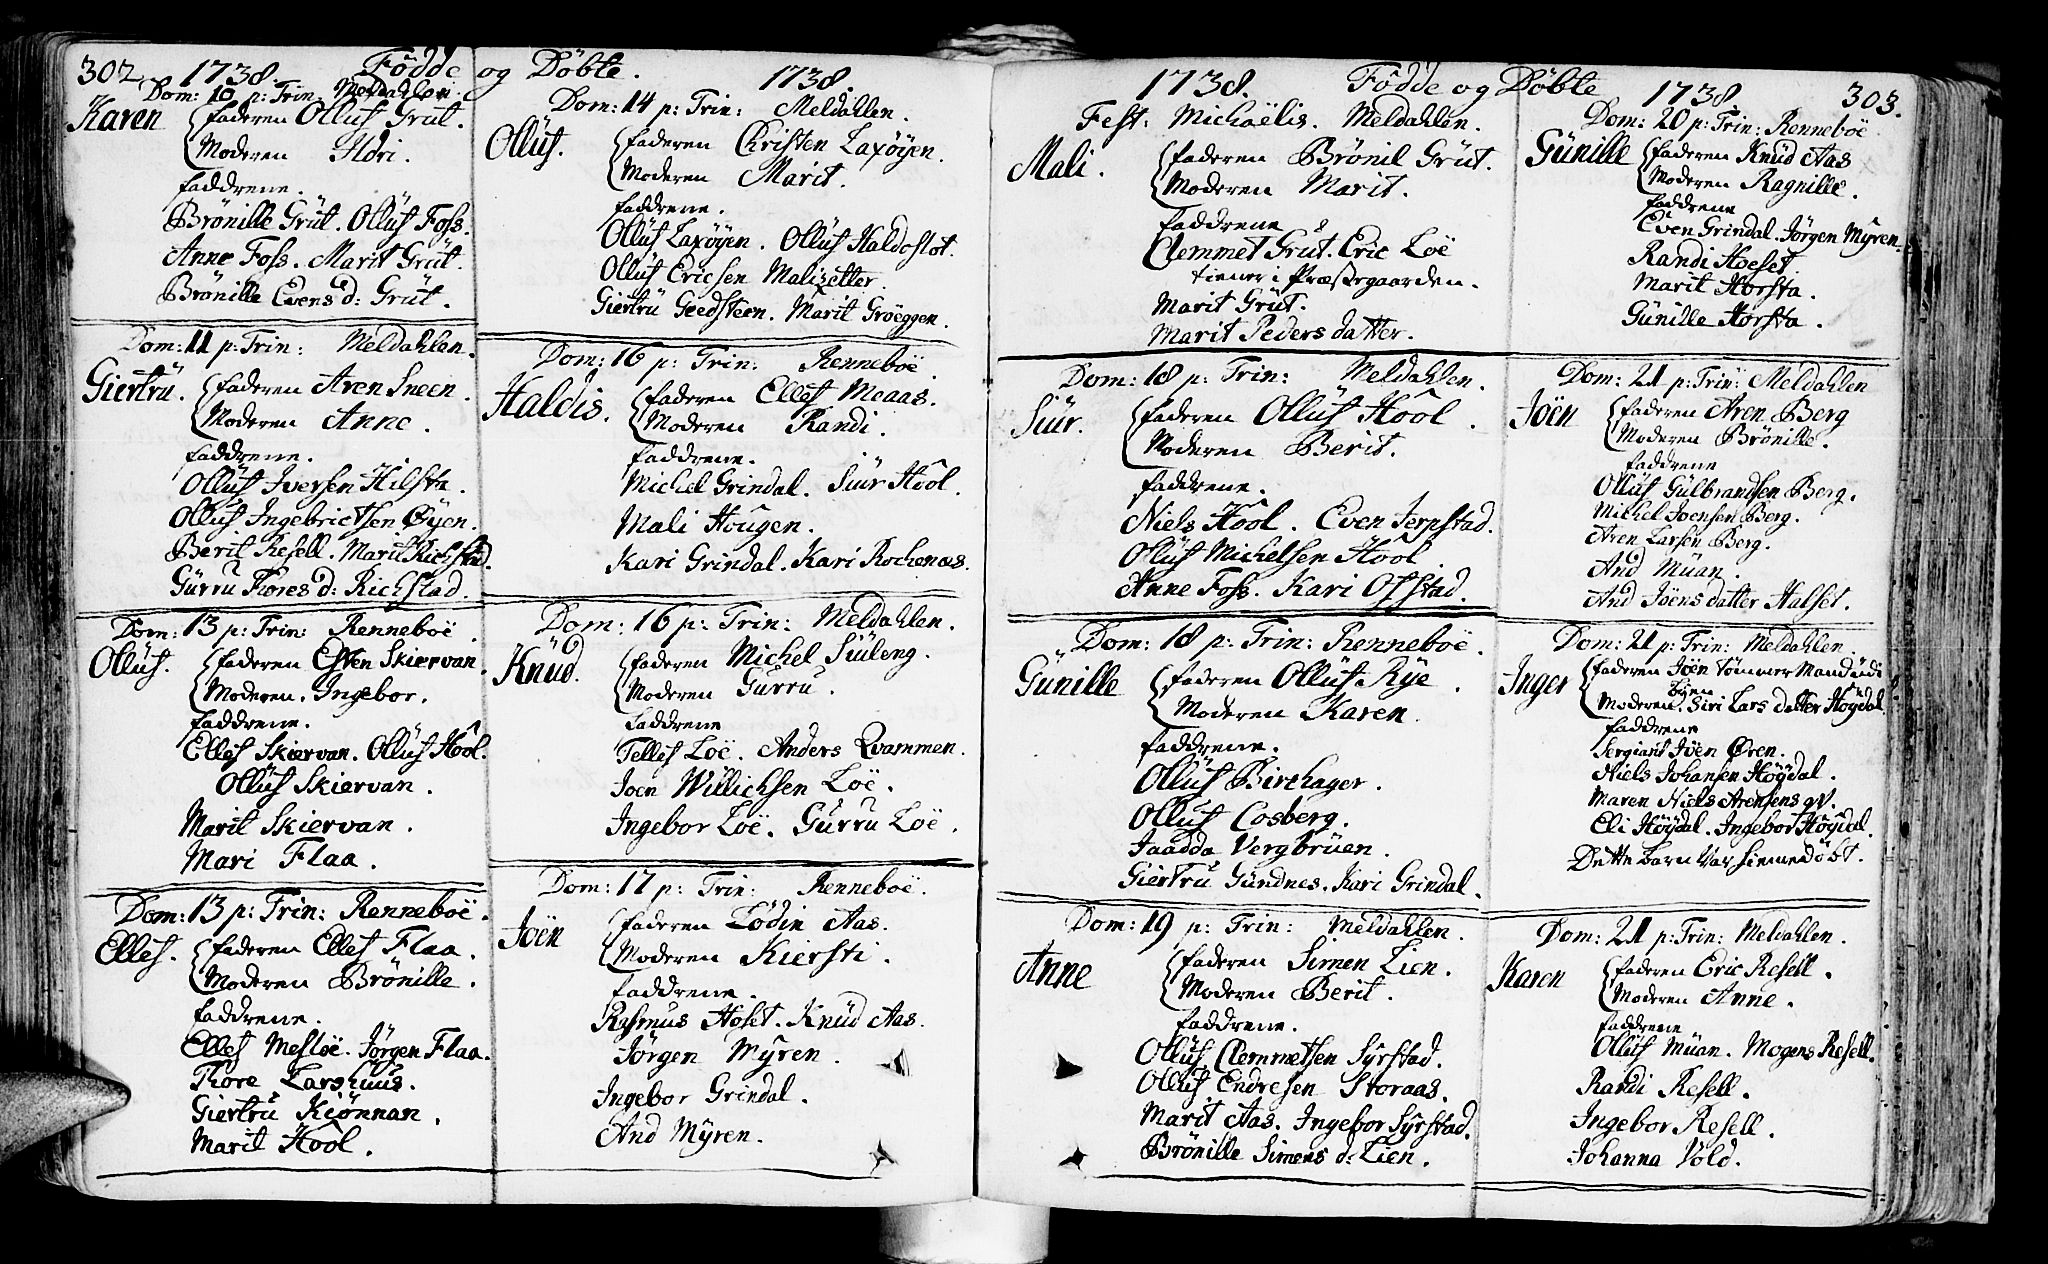 302. 1738. Födde og Döbte. 1738.
Dom: 10 p: Trin. Meldahlen.
Karen faderen Ollüf Grüt.
Moderen Ildri.
faddrene.
Brönille Grüt. Ollüf Foss.
Anne Foss. Marit Grüt.
Brönille Evens d: Grüt.
Dom: 11 p: Trin: Meldahlen.
Giertrü. faderen Aren Sneen.
Moderen Anne.
faddrene.
Ollüf Iversen Hilsta.
Ollüf Ingebrictsen Øyen.
Berit Resell. Marit Richstad.
Gürru Tores d: Richstad.
Dom: 13 p: Trin: Renneboë.
Ollüf. faderen Esten Skiervan.
Moderen. Ingebor.
faddrene.
Ellef Skiervan. Ollüf Hool.
Ollüf Skiervan.
Marit Skiervan.
Mari Flaa.
Dom: 13 p: Trin: Renneboë.
Ellef. faderen Ellef Flaa.
Moderen Brönille.
faddrene.
Ellef Mesloë. Jörgen Flaa.
Thore Larshuus.
Giertrü Kiönnan.
Marit Hool.
Dom: 14 p: Trin: Meldahlen.
Ollüf. faderen Christen Laxöyen.
Moderen Marit.
faddrene.
Ollüf Laxöyen. Ollüf Haldoslot.
Ollüf Ericsen Malizetter.
Giertrü Geedsteen. Marit Gröeggen.
Dom: 16 p: Trin: Renneboë.
Haldis. faderen Ellef Meaas.
Moderen Randi.
faddrene.
Michel Grindal. Siür Hool.
Mali Hougen.
Kari Grindal. Kari Rochenæs.
Dom: 16 p: Trin: Meldahlen.
Knüd. faderen Michel Siüleng.
Moderen Gürru.
faddrene
Tellef Loë. Anders Qvammen.
Joen Willichsen Loë.
Ingebor Loë. Gürru Loë.
Dom: 17 p: Trin: Renneboë.
Joën faderen Lödin Aas.
Moderen Kiersti.
faddrene.
Rasmus Hoset. Knüd Aas.
Jörgen Myren.
Ingebor Grindal.
And Myren.
1738. Födde og Döbte 1738 303.
Fest: Michaëlis. Meldahlen.
Mali. faderen Brönil Grüt.
Moderen Marit.
faddrene
Clemmet Grüt. Eric Loë
tiener i Præstegaarden.
Marit Grüt.
Marit Peders datter.
Dom: 18 p: Trin: Meldahlen.
Siür. faderen Ollüf Hool.
Moderen Berit.
faddrene.
Niels Hool. Even Jerpstad.
Ollüf Michelsen Hool.
Anne Foss. Kari Ofstad.
Dom: 18 p: Trin: Renneboë.
Günille faderen Ollüf Rye.
Moderen Karen.
faddrene.
Ollüf Birchager.
Ollüf Cosberg.
Jaadda Vergbrüen.
Giertrü Gündnes. Kari Grindal.
Dom: 19 p: Trin: Meldahlen.
Anne faderen Simen Lien.
Moderen Berit.
faddrene.
Ollüf Clemmetsen Syrstad.
Ollüf Endresen Storaas.
Marit Aas. Ingebor Syrstad.
Brönille Simens d: Lien.
Dom: 20 p: Trin: Renneboë
Günille faderen Knüd Aas
Moderen Ragnille.
faddrene
Even Grindal. Jörgen Myren.
Randi Hoeset
Marit Horsta.
Günille Horsta.
Dom: 21 p: Trin: Meldahlen
Joën faderen Aren Berg
Moderen Brönille.
faddrene
Ollüf Gülbrandsen Berg.
Michel Joensen Berg.
Aren Larsen Berg.
And Müan.
And Joëns datter Halset.
Dom: 21 p: Trin: Meldahlen.
Inger faderen Joën Tömmermand
Moderen. Siri Lars datter Höydal.
faddrene
Sergiant Joën Øren.
Niels Johansen Höydal.
Maren Niels Arensens qv.
Eli Höydal. Ingebor Höydal.
Dette barn var hiemedöbt.
Dom: 21 p: Trin: Meldahlen.
Karen faderen Eric Resell.
Moderen Anne.
faddrene
Ollüf Müan. Mogens Resell.
Randi Resell.
Ingebor Resell.
Johanna Vold.